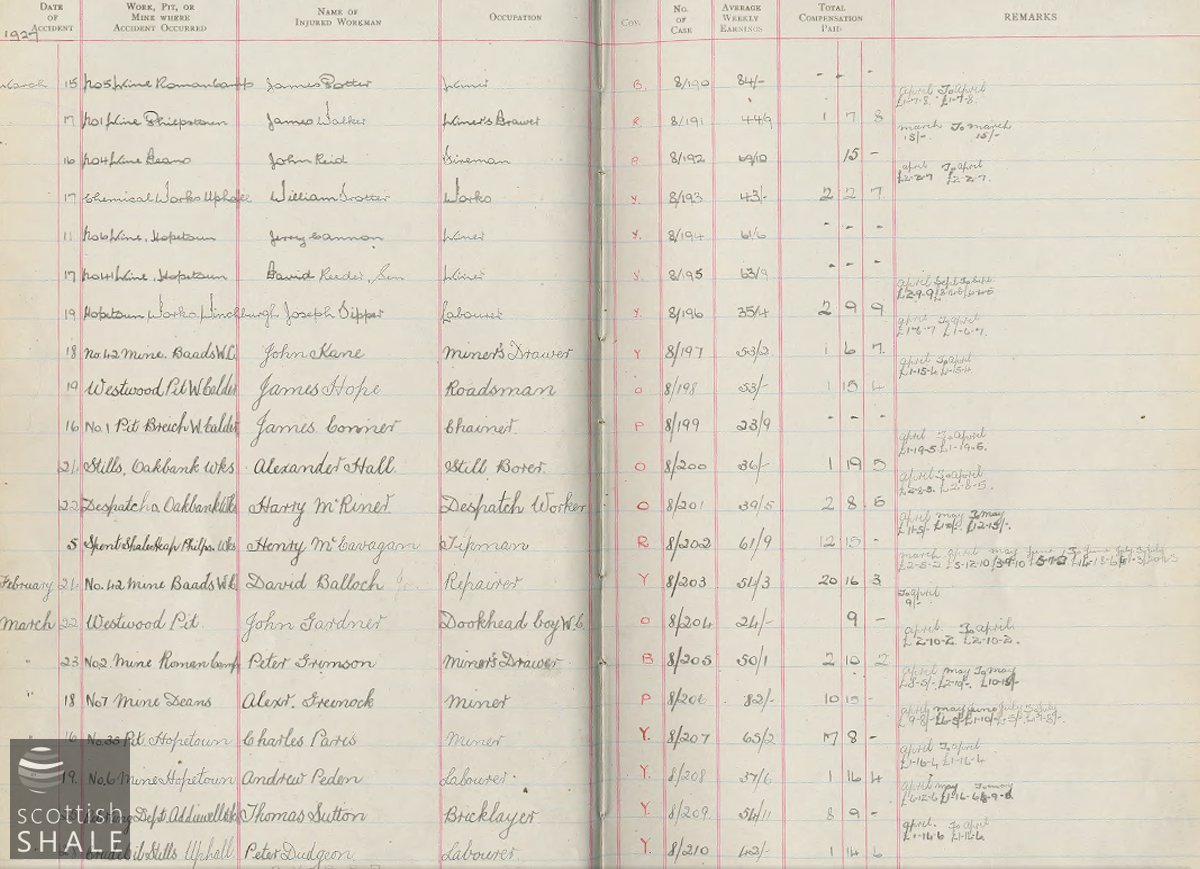 DATE OF ACCIDENT WORK, PIT, OR MINE WHERE ACCIDENT OCCURRED NAME OF INJURED WORKMAN OCCUPATION Coy. No. OF CASE AVERAGE WEEKLY EARNINGS TOTAL COMPENSATION PAID REMARKS
1927
March 15 No5 Mine Roman Camp James Potter Miner B. 8/190 84/- - - -
April To April
£1-7-8. £1-7-8.
17 No1 Mine James Walker Miner's Drawer R 8/191 44/9 1 7 8
March To March
15/- 15/-
16 No4 Mine Deans John Reid Fireman P 8/192 69/10 15 -
April To April
£2-2-7 £2-2-7.
17 Chemical Works Uphall William Trotter Works Y. 8/193 43/- 2 2 7
11 No6 Mine, Hopetown Jerry Cannon Miner Y. 8/194 61/6 - - -
17 No41 Mine, Hopetown David Reeder, Sen Miner Y. 8/195 63/9 - - -
April Sept To Sept
£2-9-9
19 Hopetown Works, Winchburgh Joseph Sipper Labourer Y. 8/196 35/4 2 9 9
April To April
£1-6-7 £1-6-7.
18 No. 42 Mine. Baads W.C. John Kane Miner's Drawer Y 8/197 53/2 1 6 7.
April To April
£1-15-4 £1-15-4
19 Westwood Pit W. Calder James Hope Roadsman O 8/198 53/- 1 15 4
16 No. 1 Pit Breich W. Calder James Conner Chainer. P 8/199 23/9 - - -
April To April
£1-19-5 £1-19-5.
21. Stills, Oakbank Wks Alexander Hall. Still Borer. O 8/200 36/- 1 19 5
April To April
£2-8-5. £2-8-5.
22 Despatch, Oakbank Wks Harry McRiner Despatch Worker O 8/201 39/5 2 8 5
April May To May
£12-15/-.
5 Spent Shale Heap Philps. Wks Henry McCavagan Tipman R 8/202 61/9 12 15 -
March April May June To June July To July
£2-8-2 £5-12-10
February 21. No. 42 Mine Baads W.C. David Balloch Jr. Repairer Y 8/203 54/3 20 16 3
To April
9/-
March 22 Westwood Pit. John Gardner Dookhead Boy W.C. O 8/204 24/- 9 -
April. To April
£2-10-2. £2-10-2.
" 23 No2 Mine Roman Camp Peter Grimson Miner's Drawer B 8/205 50/1 2 10 2
April May To May
£8-5/-. £2-10/-. £10-15/-
" 18 No7 Mine Deans Alexr. Greenock Miner P 8/206 82/- 10 15 -
April May June July To July
" 16 No. 35 Pit Hopetown Charles Paris Miner Y. 8/207 65/2 17 8 -
April To April
£1-16-4 £1-16-4
19. No. 6 Mine Hopetown Andrew Peden Labourer. Y. 8/208 37/6 1 16 4
April May To May
£6-12-6 £1-16-6
Dept. Addiewell Thomas Sutton Bricklayer Y. 8/209. 54/11 8 9 -
April. To April
£1-14-6 £1-14-6
Crude Oil Stills Uphall Peter Dudgeon Labourer. Y. 8/210 42/- 1 14 6
scottish
SHALE